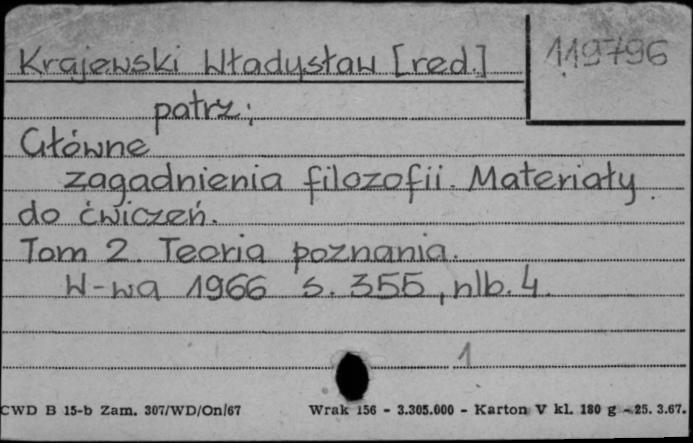 Krajewski Władysław [red.]
119796
patrz;
Główne
zagadnienia filozofii. Materiały
do ćwiczeń.
Tom 2. Teoria poznania.
W-wa 1966 s. 355, nlb. 4.
1
CWD B 15-b Zam. 307/WD/On/67 Wrak 156 - 3.305.000 - Karton V kl. 180 g - 25. 3.67.